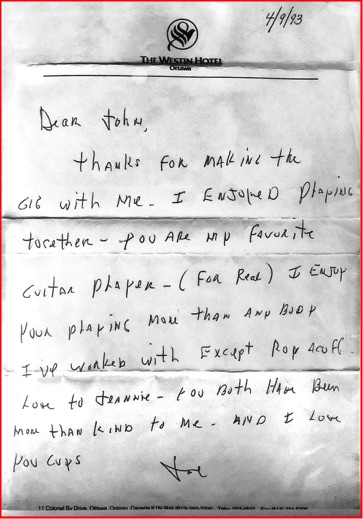 4/9/93
THE WESTIN HOTEL
Ottawa
Dear John,
thanks for making the
gig with me - I enjoyed playing
together - you are my favorite
guitar player - (for real) I enjoy
your playing more than any body
I've worked with except Roy Acuff.
Love to Jeannie - you both have been
more than kind to me - and I love
you cups
Joe
11 Colonel By Drive, Ottawa, Ontario, Canada K1N 9H4 (613) 560-7000